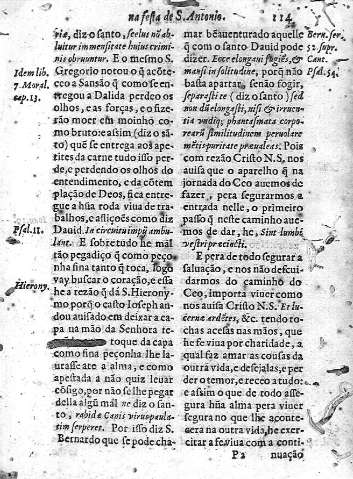 na festa de S. Antonio.
114
ria, diz o santo, scelus nō ab-
luitur immensitate huius crimi-
nis obruuntur. E o mesmo S.
Gregorio notou q̃ acōte-
ceo a Sansão q̃ como se en-
tregou a Dalida perdeo os
olhos, e as forças, e o fize-
rão moer em moinho co-
mo bruto: e assim (diz o sā-
to) q̃ se entrega aos ape-
tites da carne tudo isso per-
de, e perdendo os olhos do
entendimento, e da cōtem-
plação de Deos, fica entre-
gue a hũa roda viva de tra-
balhos, e aflições como diz
Dauid. In circuitu impij ambu-
lant. E sobretudo he mal
tão pegadiço q̃ como peço-
nha fina tanto q̃ toca, logo
vay buscar o coração, e essa
he a rezão q̃ dá S. Hierony-
mo porq̃ o casto Ioseph an-
dou auisado em deixar a ca-
pa na mão da Senhora te-
toque da capa
como fina peçonha lhe la-
urasse ate a alma, e como
apestada a não quiz leuar
cōsigo, por não se lhe pegar
della algũ mal ne diz o san-
to, rabidæ Canis virus paula-
tim serperet. Por isso diz S.
Bernardo que se pode cha-
Idem lib.
7. Moral.
cap. 13.
Psal. 11.
Hierony.
mar bēauenturado aquelle
q̃ com o santo Dauid pode
dizer. Ecce elongaui fugiēs, &
mansi in solitudine, porq̃ não
basta apartar, senão fogir,
separastite (diz o santo) sed
non dū elongasti, nisi & irruen-
tia undiq; phantasmata corpo-
rearū similitudinem peruolare
mētis puritate præualeas. Pois
com rezão Cristo N. S, nos
auisa que o aparelho q̃ na
jornada do Ceo auemos de
fazer, pera segurarmos a
entrada nelle, o primeiro
passo q̃ neste caminho aue-
mos de dar, he, Sint lumbi
vestri præcincti.
E pera de todo segurar a
saluação, e nos não descui-
darmos do caminho do
Ceo, importa viuer como
nos auisa Cristo N.S. Et lu-
cernæ ardētes, &c. tendo ro-
chas acesas nas mãos, que
he se viua por charidade, a
qual faz amar as cousas da
outra vida, e desejalas, e per
der o temor, e receo a tudo:
e assim o que de todo asse-
gura hũa alma pera viuer
segura no que lhe aconte-
cera na outra vida, he exer-
citar a fe viua com a conti-
Bern. ser.
52. supr.
Cant.
Psal. 54.
P 2
nuação